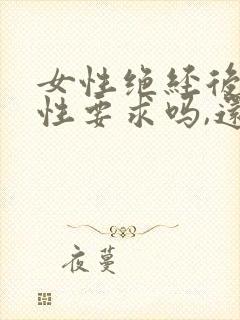 女性绝经後
性要求吗,還
夜蔓